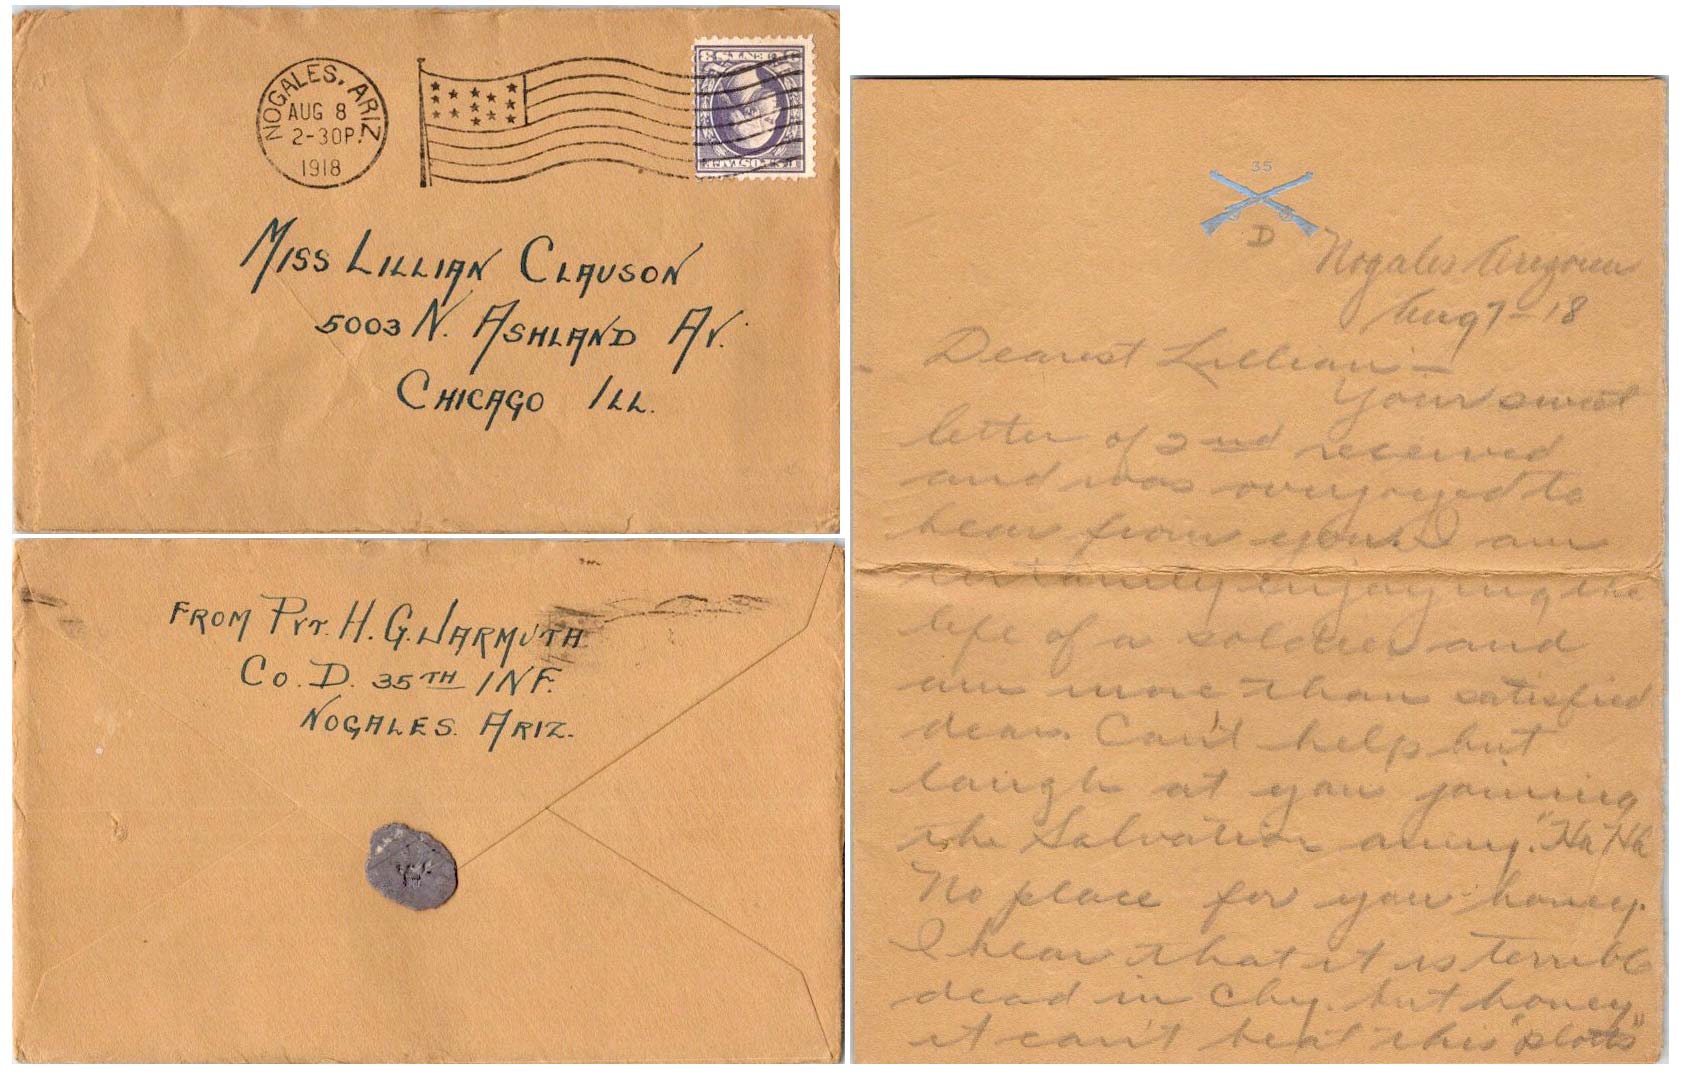 NOGALES, ARIZ.
AUG 8
2-30P.
1918
3 CENTS 3
U.S. POSTAGE
MISS LILLIAN CLAUSON
5003 N. ASHLAND AV.
CHICAGO ILL.
FROM PVT. H. G. WARMUTH
CO. D. 35TH INF.
NOGALES. ARIZ.
35
D
Nogales Arizona
Aug 7-18
Dearest Lillian-
Your sweet
letter of 2nd received
and was overjoyed to
hear from you. I am
certainly enjoying the
life of a soldier and
am more than satisfied
dear. Can't help but
laugh at you joining
the Salvation army. "Ha Ha
No place for you honey.
I hear that it is terrible
dead in Chy. but honey
it can't beat this